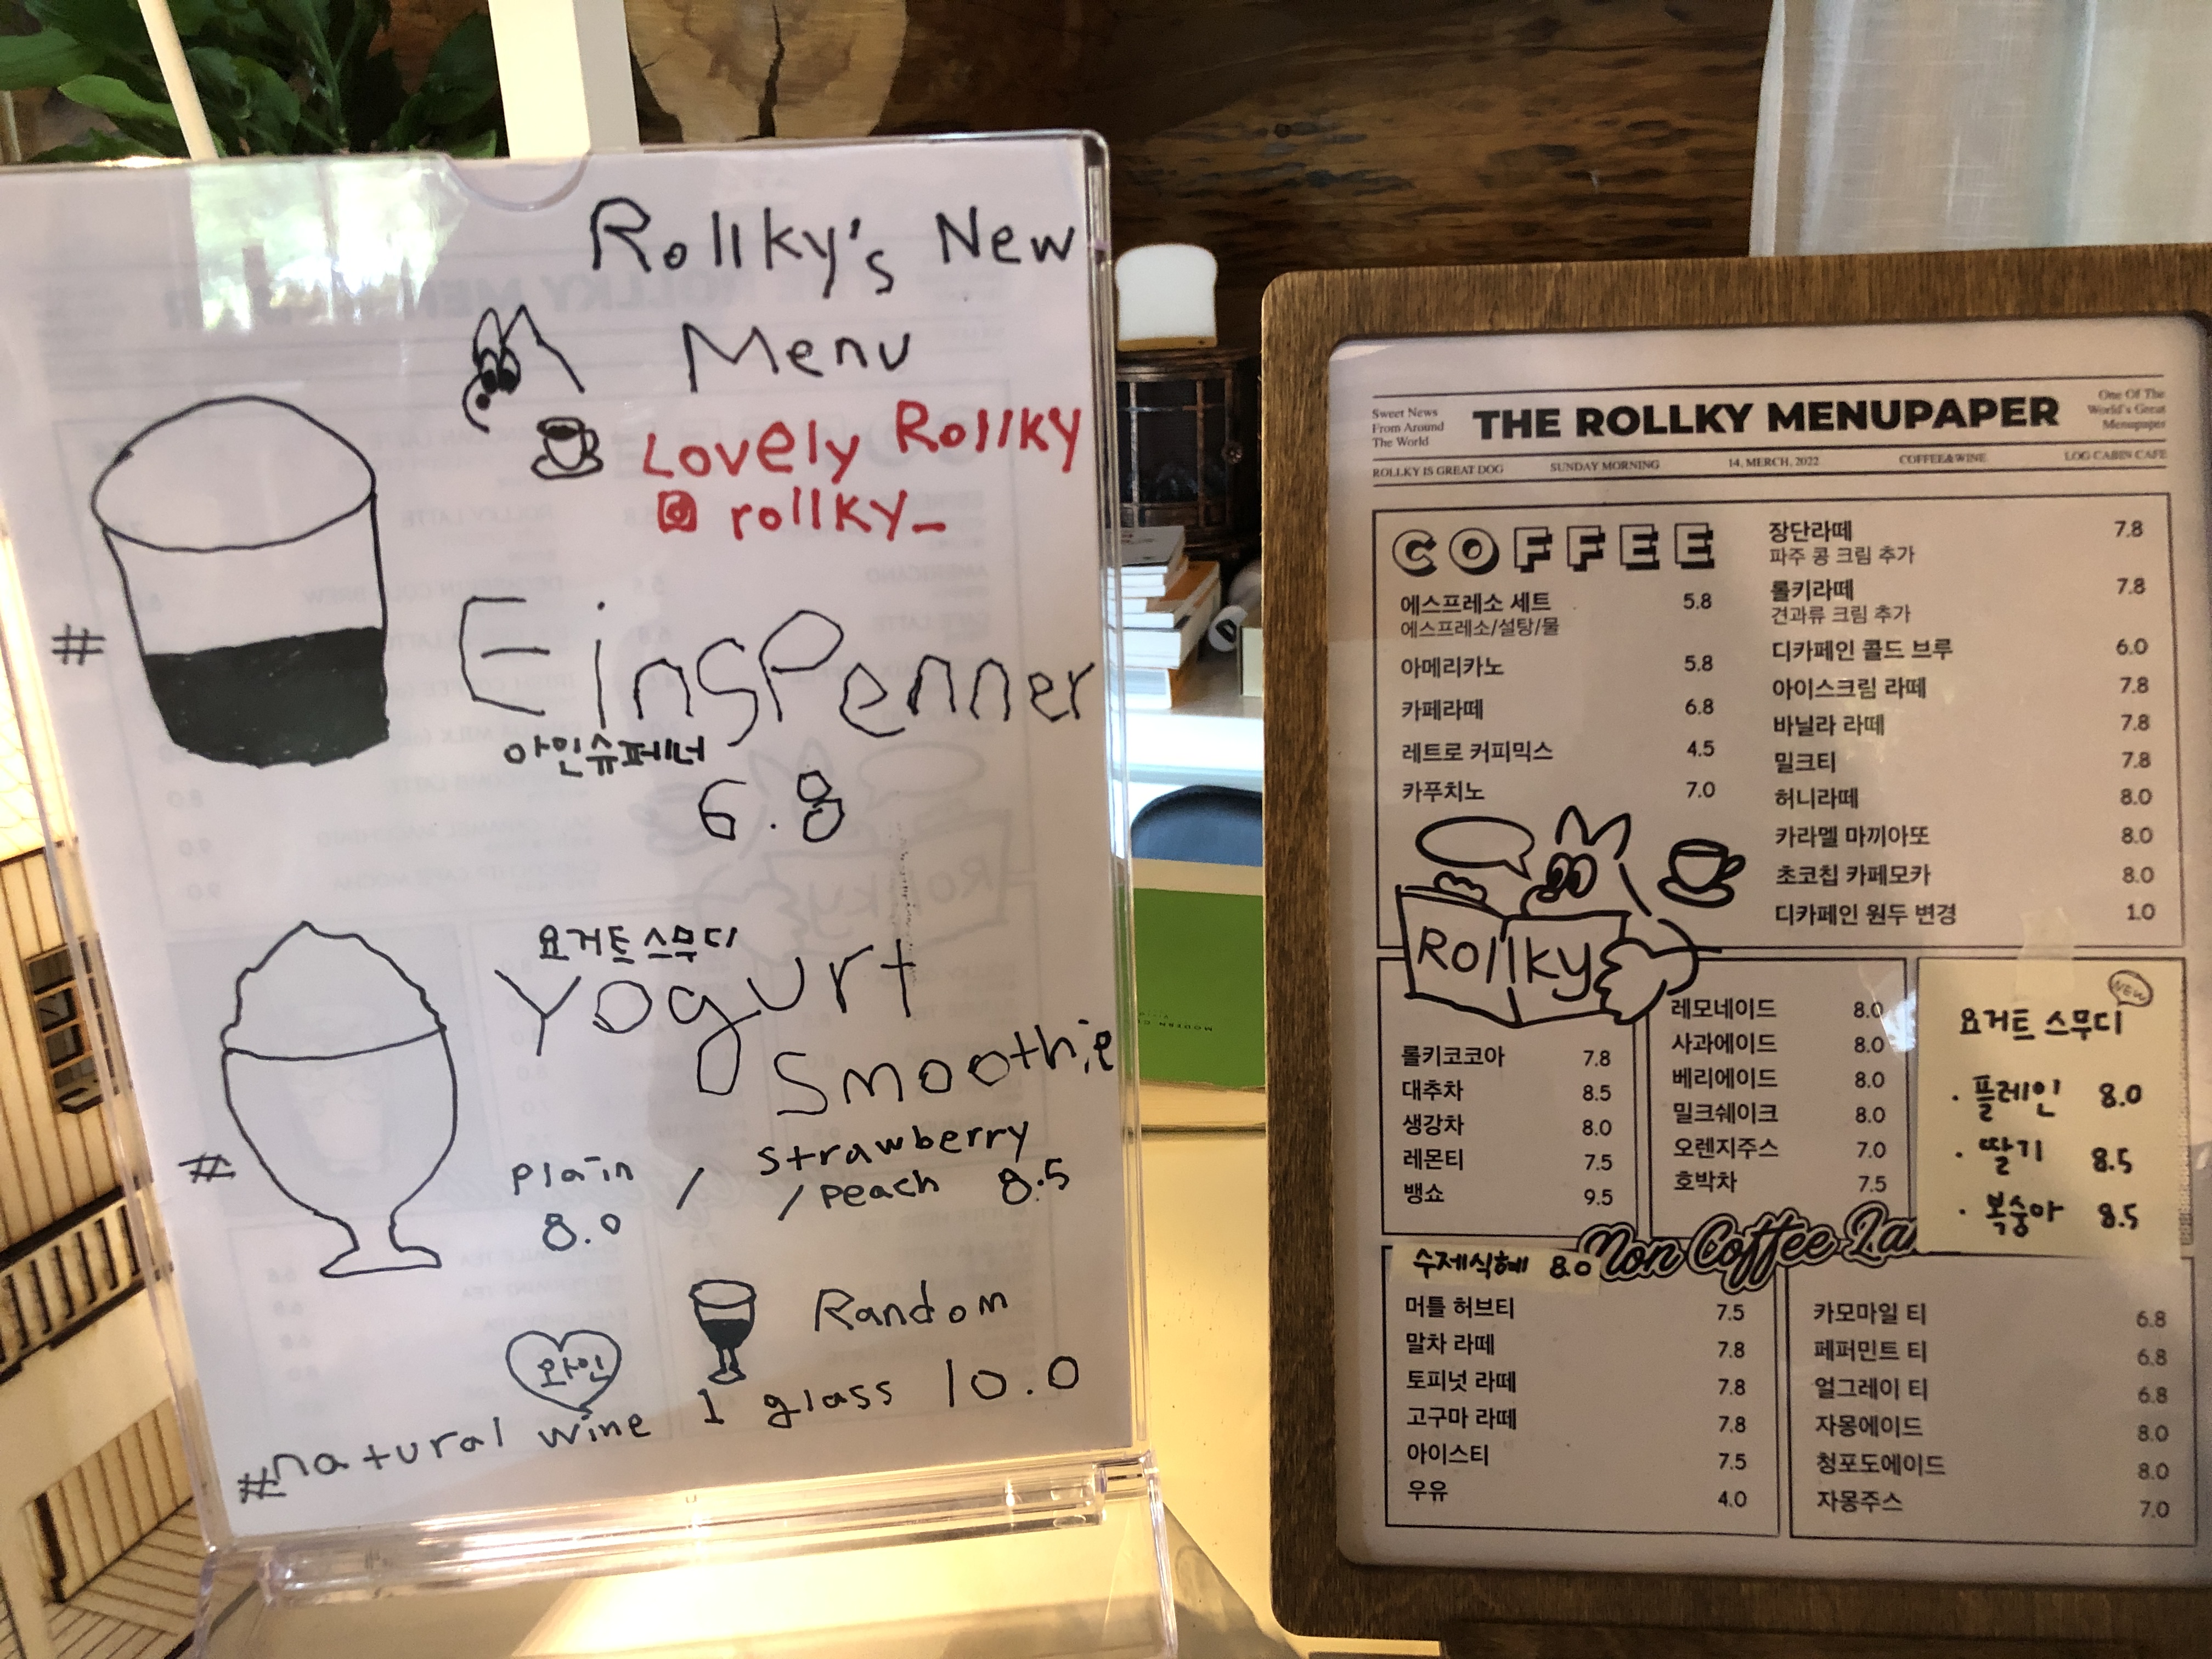 Rollky's New
Menu
Lovely Rollky
rollky_
# Einspenner
아인슈페너
6.8
요거트 스무디
# Yogurt
Smoothie
plain / strawberry
8.0 / peach 8.5
와인 Random
#natural wine 1 glass 10.0
Sweet News
From Around
The World
THE ROLLKY MENUPAPER
One Of The
World's Great
Menupaper
ROLLKY IS GREAT DOG SUNDAY MORNING 14, MERCH, 2022 COFFEE&WINE LOG CABIN CAFE
COFFEE
에스프레소 세트 5.8
에스프레소/설탕/물
아메리카노 5.8
카페라떼 6.8
레트로 커피믹스 4.5
카푸치노 7.0
장단라떼 7.8
파주 콩 크림 추가
롤키라떼 7.8
견과류 크림 추가
디카페인 콜드 브루 6.0
아이스크림 라떼 7.8
바닐라 라떼 7.8
밀크티 7.8
허니라떼 8.0
카라멜 마끼아또 8.0
초코칩 카페모카 8.0
디카페인 원두 변경 1.0
Rollky
롤키코코아 7.8
대추차 8.5
생강차 8.0
레몬티 7.5
뱅쇼 9.5
레모네이드 8.0
사과에이드 8.0
베리에이드 8.0
밀크쉐이크 8.0
오렌지주스 7.0
호박차 7.5
NEW
요거트 스무디
· 플레인 8.0
· 딸기 8.5
· 복숭아 8.5
Non Coffee
수제식혜 8.0
머틀 허브티 7.5
말차 라떼 7.8
토피넛 라떼 7.8
고구마 라떼 7.8
아이스티 7.5
우유 4.0
카모마일 티 6.8
페퍼민트 티 6.8
얼그레이 티 6.8
자몽에이드 8.0
청포도에이드 8.0
자몽주스 7.0